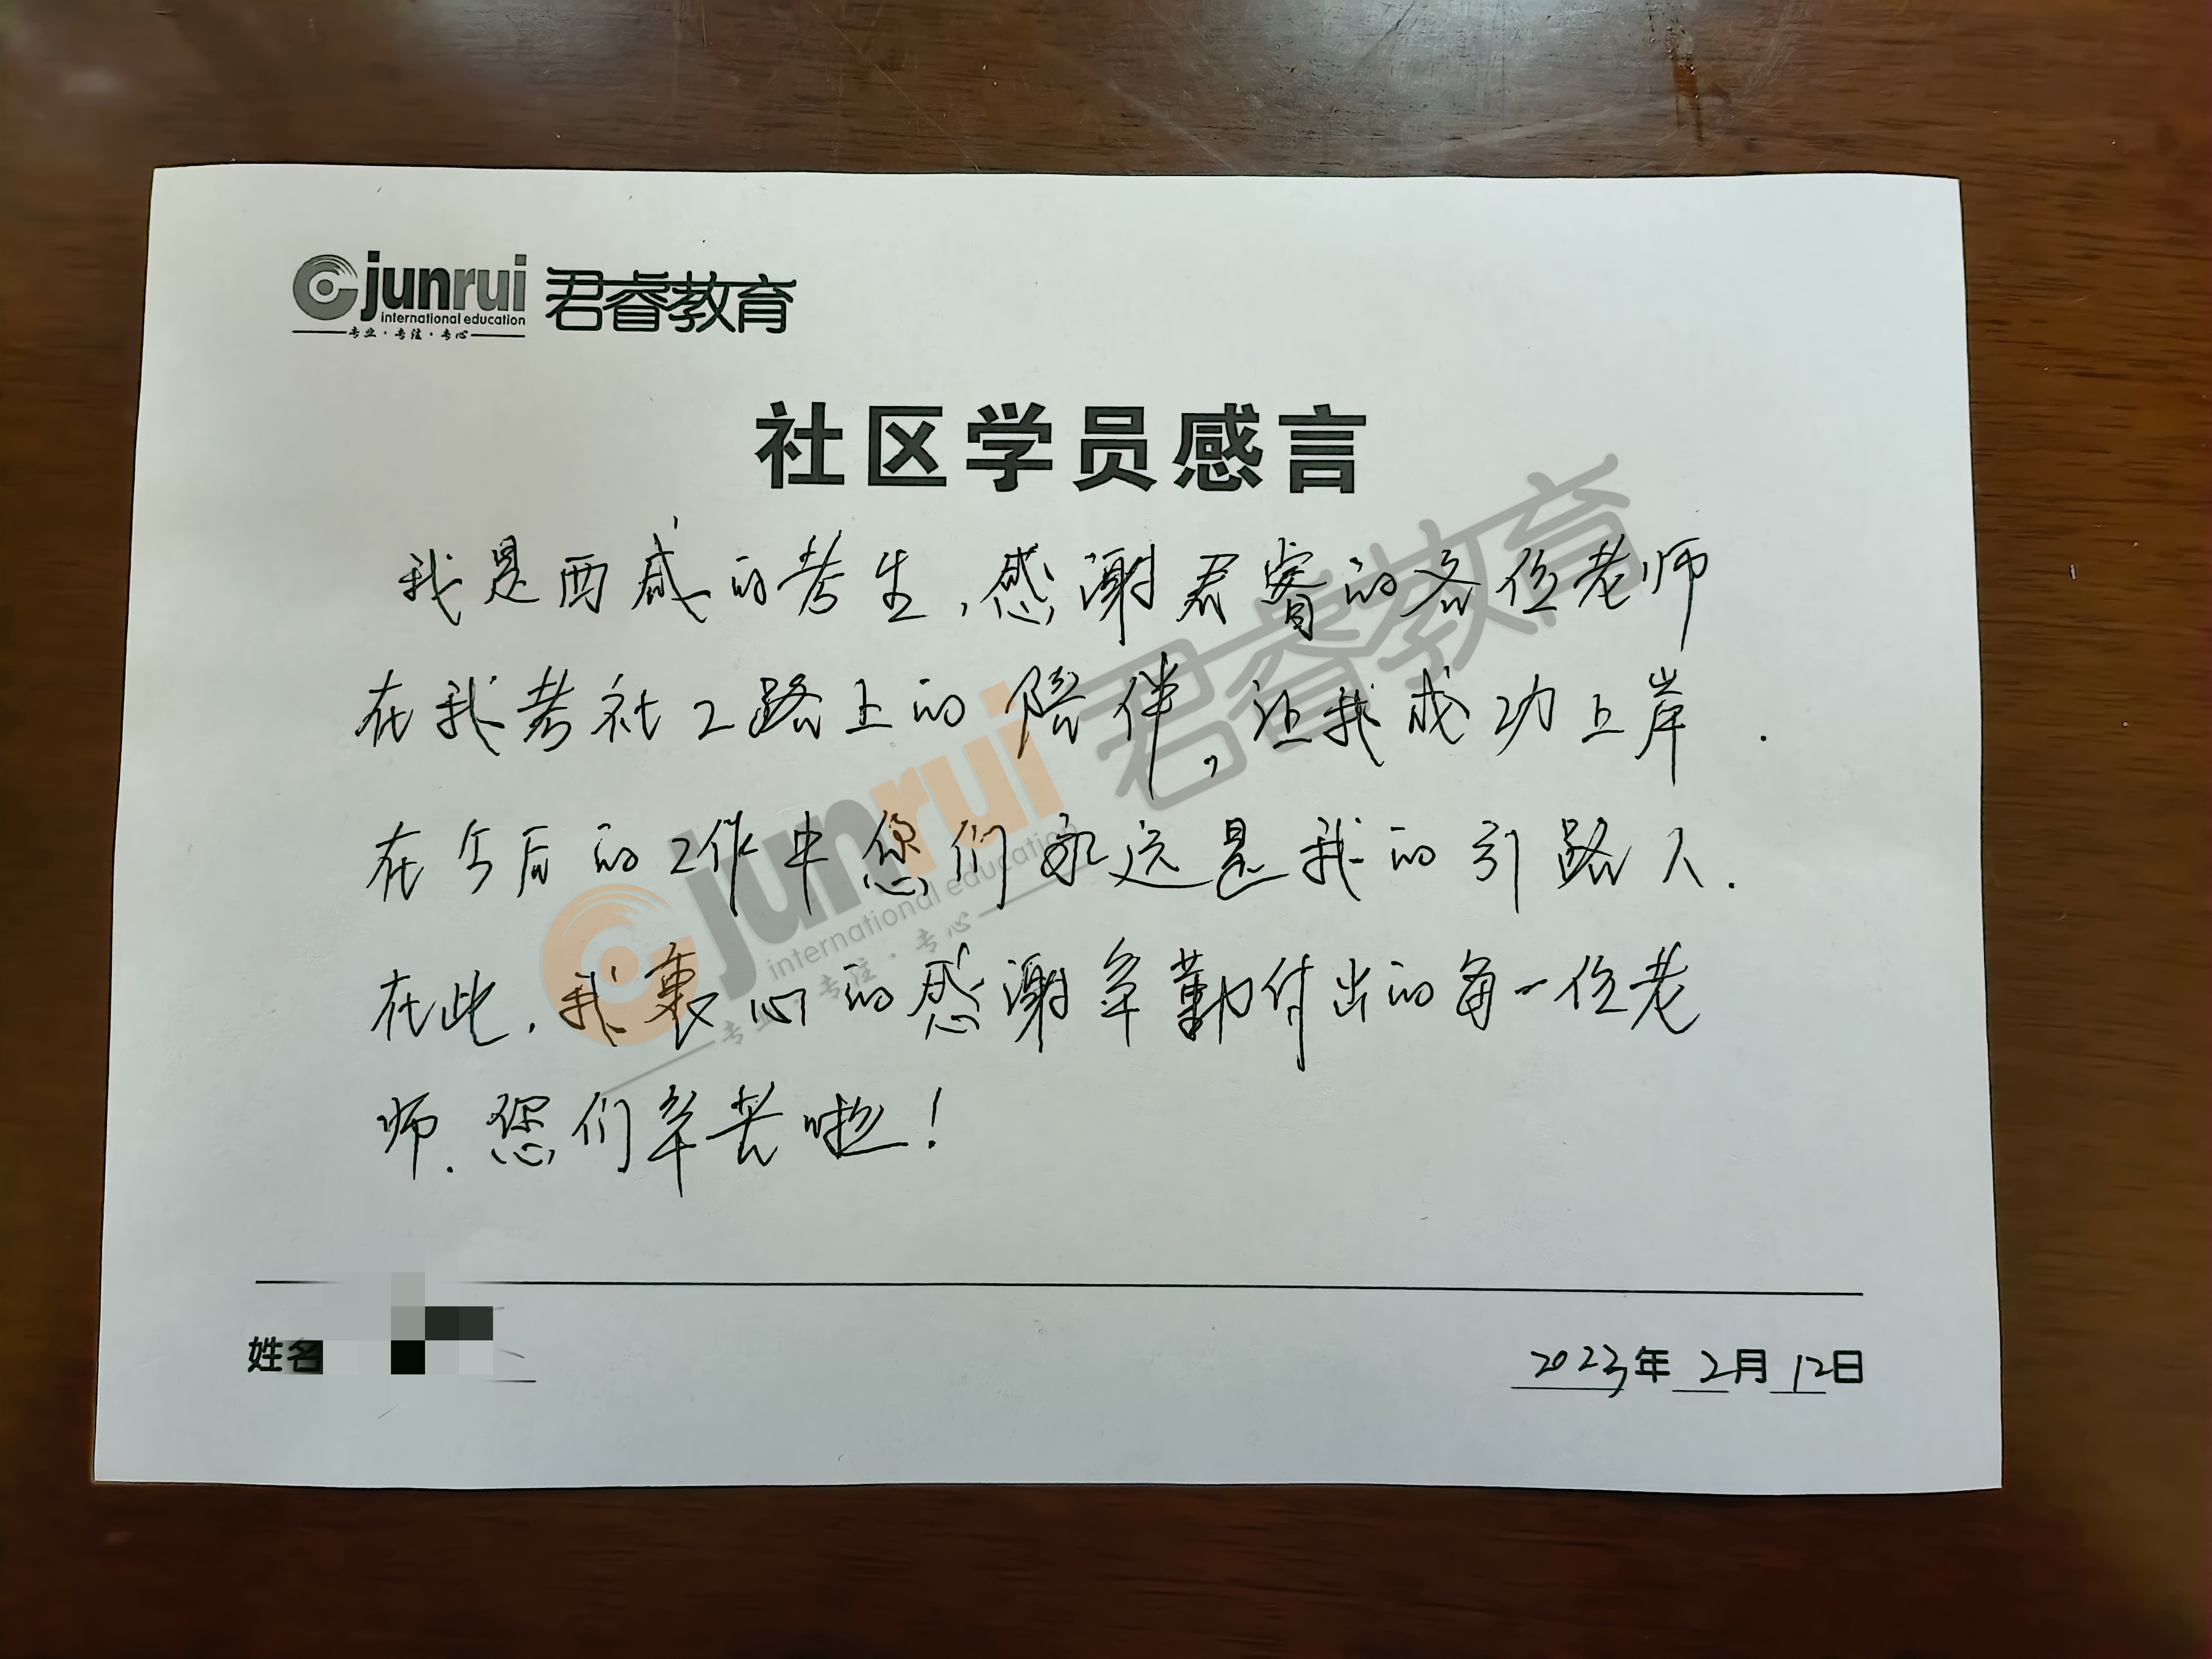 junrui 君睿教育
international education
专业·专注·专心
社区学员感言
我是西咸的考生,感谢君睿的各位老师
在我考社工路上的陪伴,让我成功上岸.
在今后的工作中您们永远是我的引路人.
在此,我衷心的感谢辛勤付出的每一位老
师.您们辛苦啦!
junrui 君睿教育
international education
专业·专注·专心
姓名
2023年2月12日